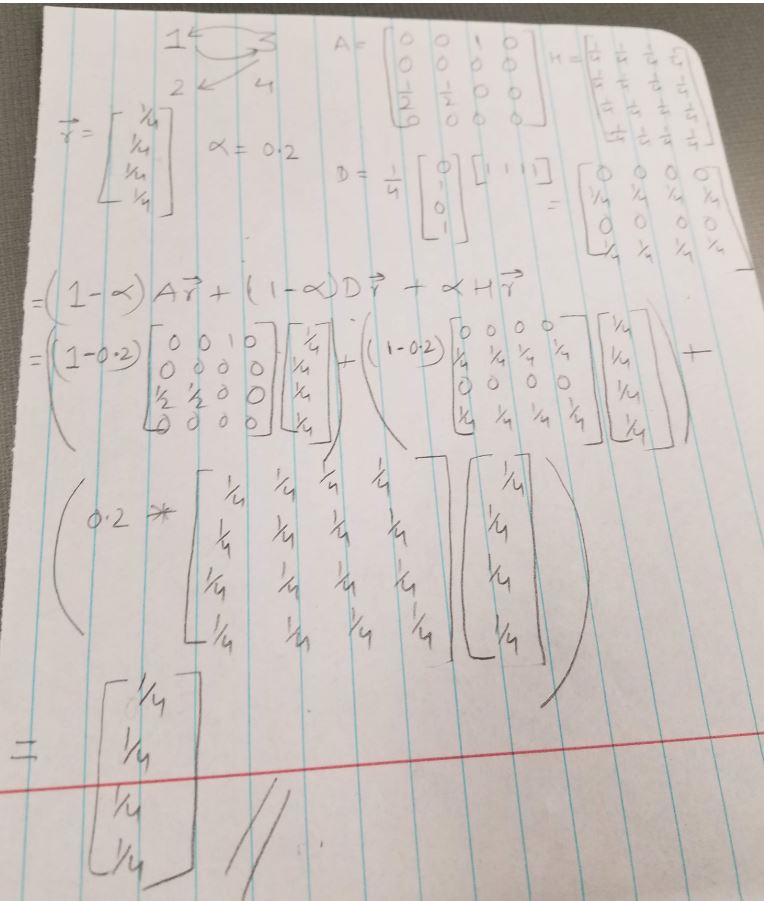 1 3 A = [ 0 0 1 0 H = [ 1/4 1/4 1/4 1/4
0 0 0 0 1/4 1/4 1/4 1/4
2 4 1/2 1/2 0 0 1/4 1/4 1/4 1/4
0 0 0 0 ] 1/4 1/4 1/4 1/4 ]
r⃗ = [ 1/4
1/4
1/4
1/4 ]
α = 0.2
D = 1/4 [ 0 1 0 1 ] [ 1 1 1 1 ]
= [ 0 0 0 0
1/4 1/4 1/4 1/4
0 0 0 0
1/4 1/4 1/4 1/4 ]
= (1-α) A r⃗ + (1-α) D r⃗ + α H r⃗
= ( (1-0.2) [ 0 0 1 0 ] [ 1/4 ] ) + ( (1-0.2) [ 0 0 0 0 ] [ 1/4 ] ) +
0 0 0 0 1/4 1/4 1/4 1/4 1/4 1/4
1/2 1/2 0 0 1/4 0 0 0 0 1/4
0 0 0 0 1/4 1/4 1/4 1/4 1/4 1/4
( 0.2 * [ 1/4 1/4 1/4 1/4 ] [ 1/4 ] )
1/4 1/4 1/4 1/4 1/4
1/4 1/4 1/4 1/4 1/4
1/4 1/4 1/4 1/4 1/4
= [ 1/4
1/4
1/4
1/4 ] //